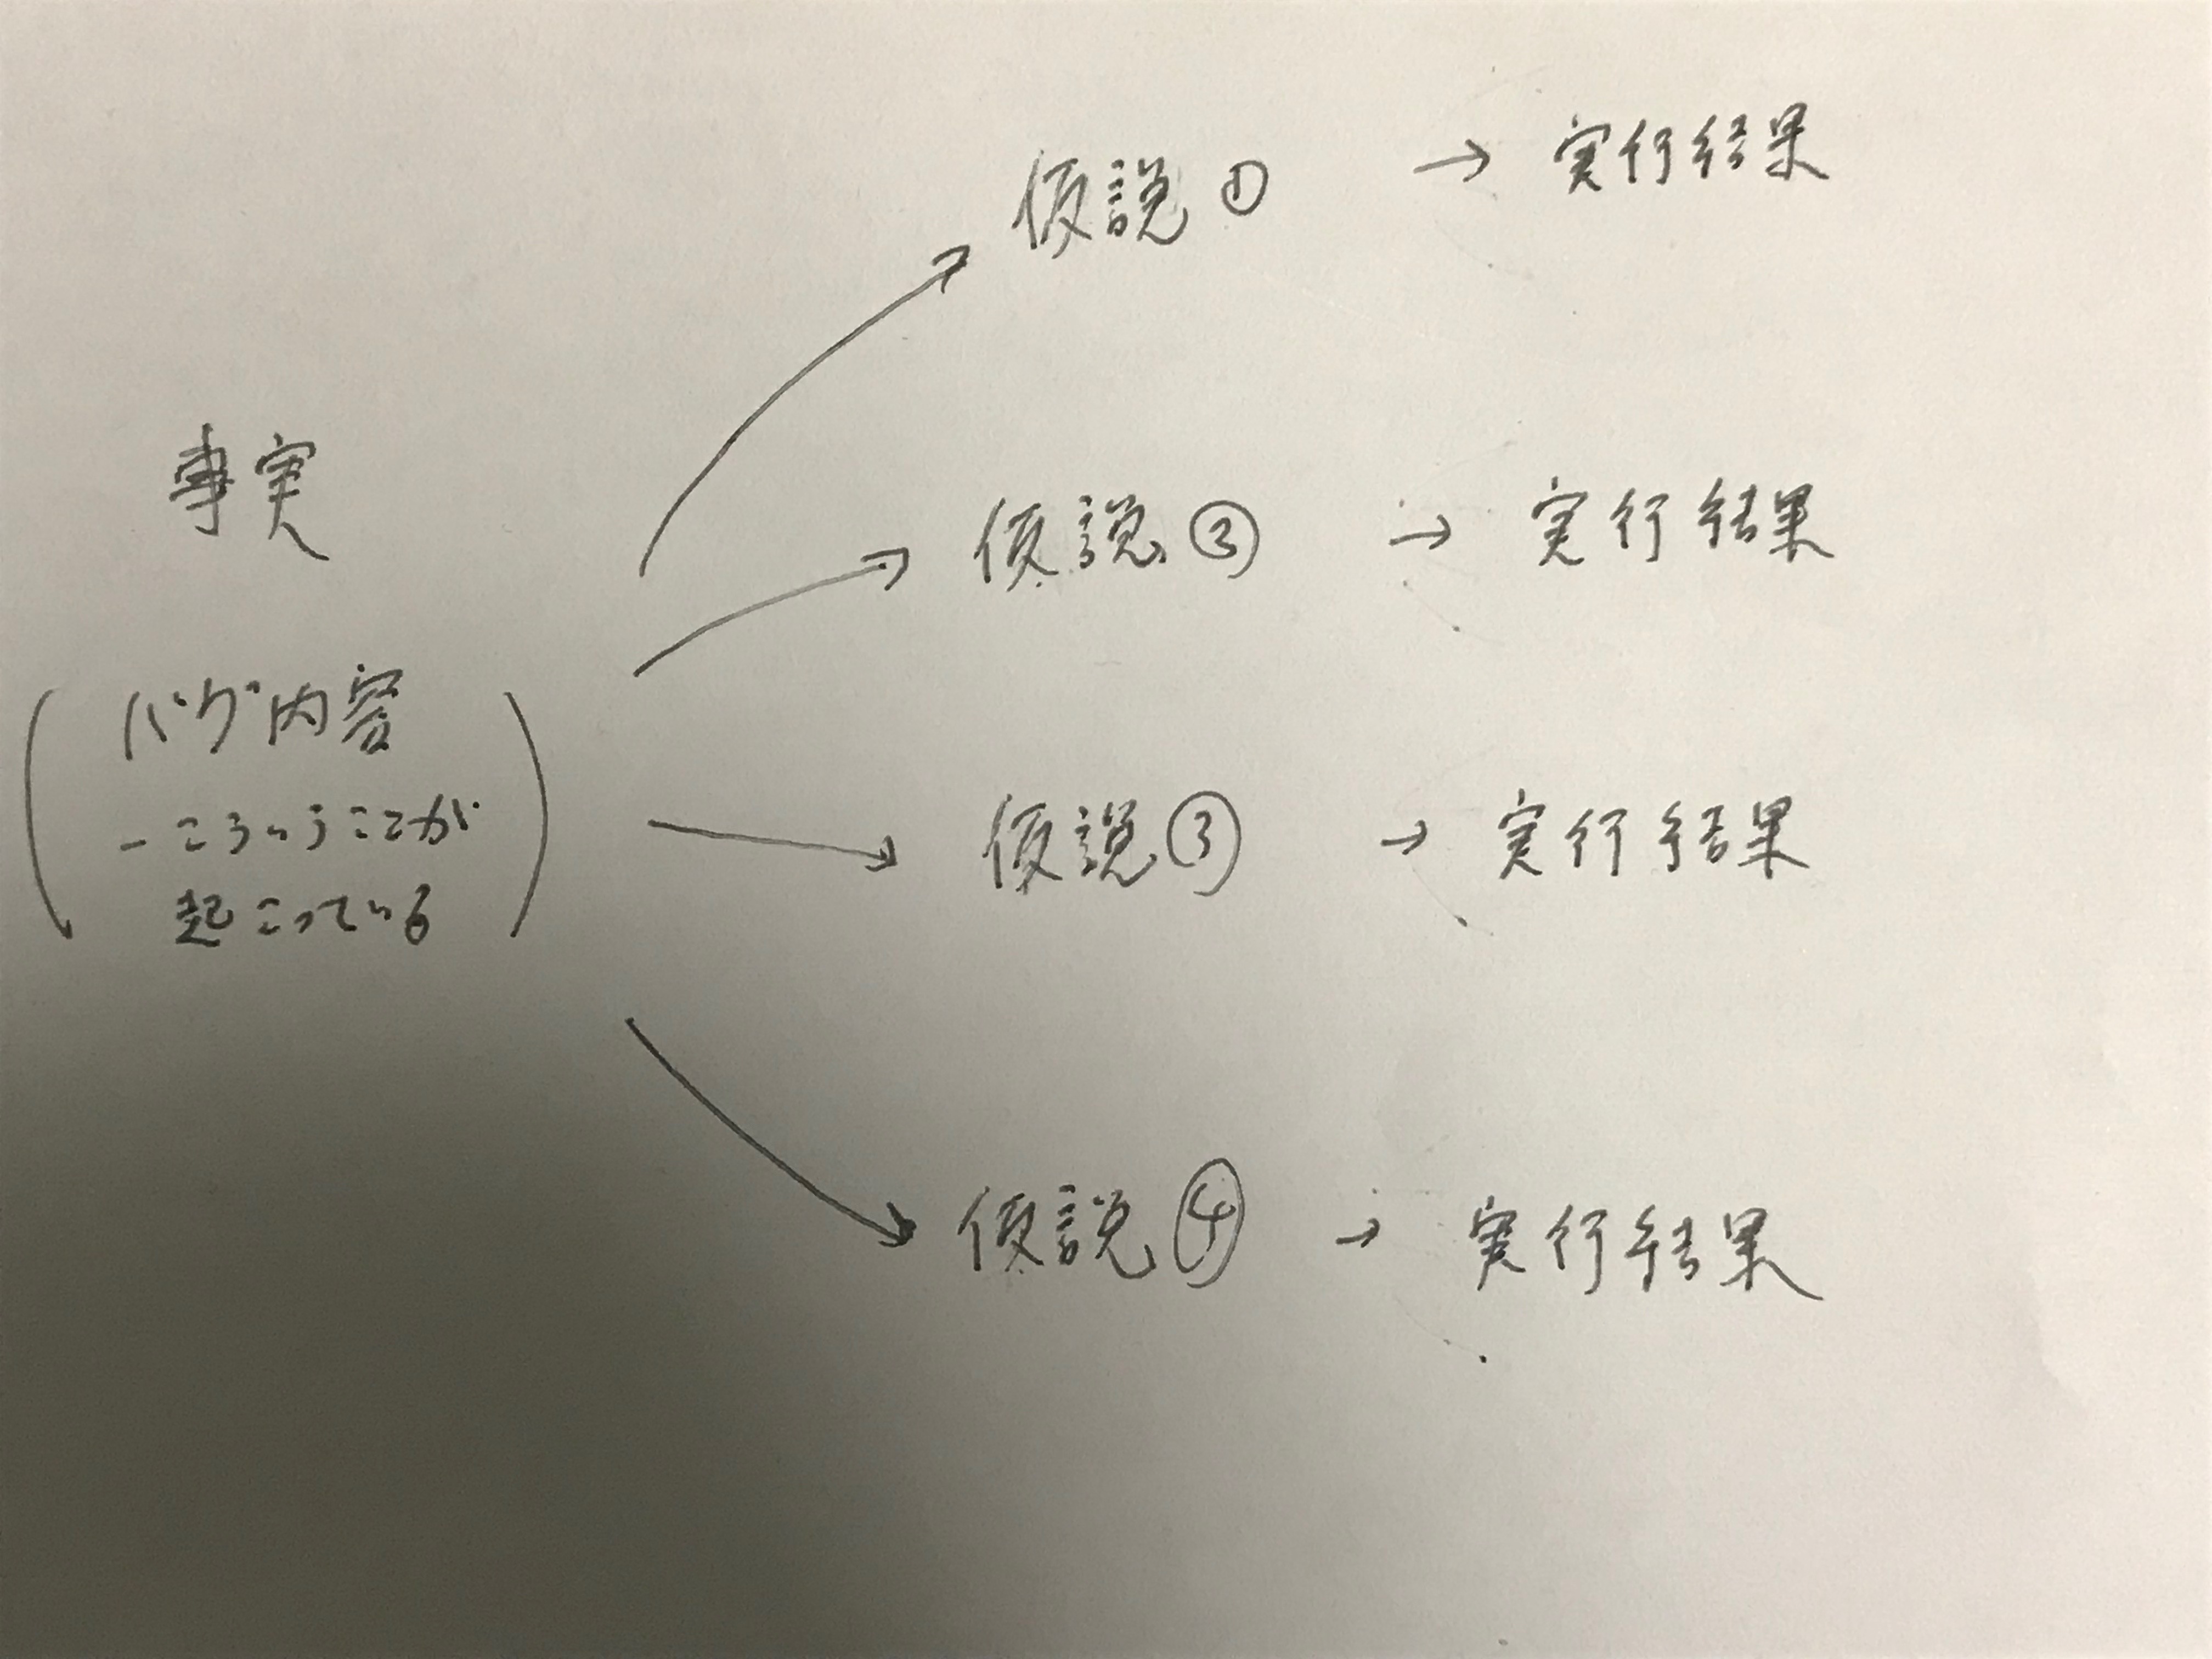 事実
(バグ内容
-こういうことが
起こっている)
仮説① → 実行結果
仮説② → 実行結果
仮説③ → 実行結果
仮説④ → 実行結果